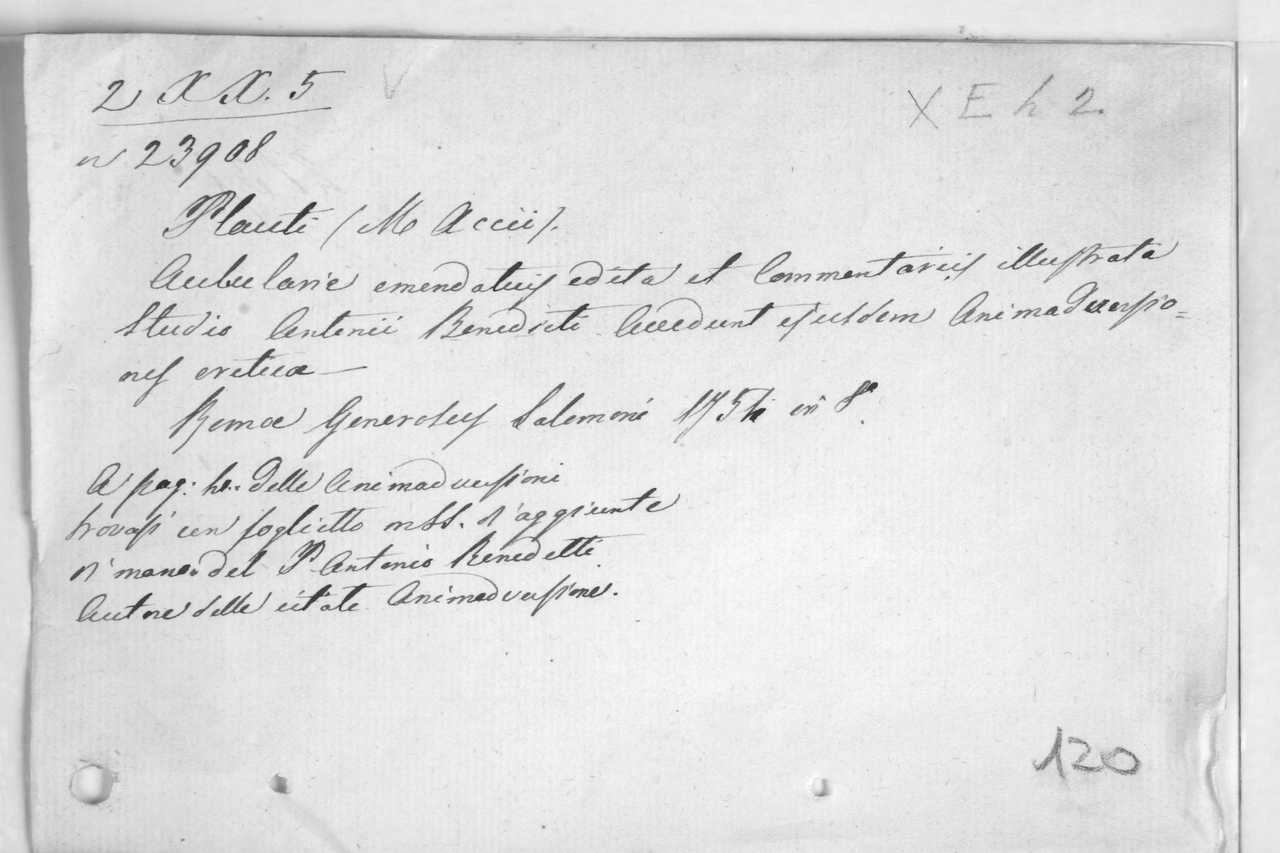 2 X X. 5
X E h 2.
n 23908
Plauti (M Accii).
Aulularia emendatius edita et Commentariis illustrata
Studio Antonii Benedicti Accedunt ejusdem Animadversio=
nes criticæ —
Romæ Generosus Salomoni 1754 in 8º.
A pag: 40. delle Animadversioni
trovasi un foglietto mss. d'aggiunte
di mano del P. Antonio Benedetti
Autore delle citate Animadversione.
120